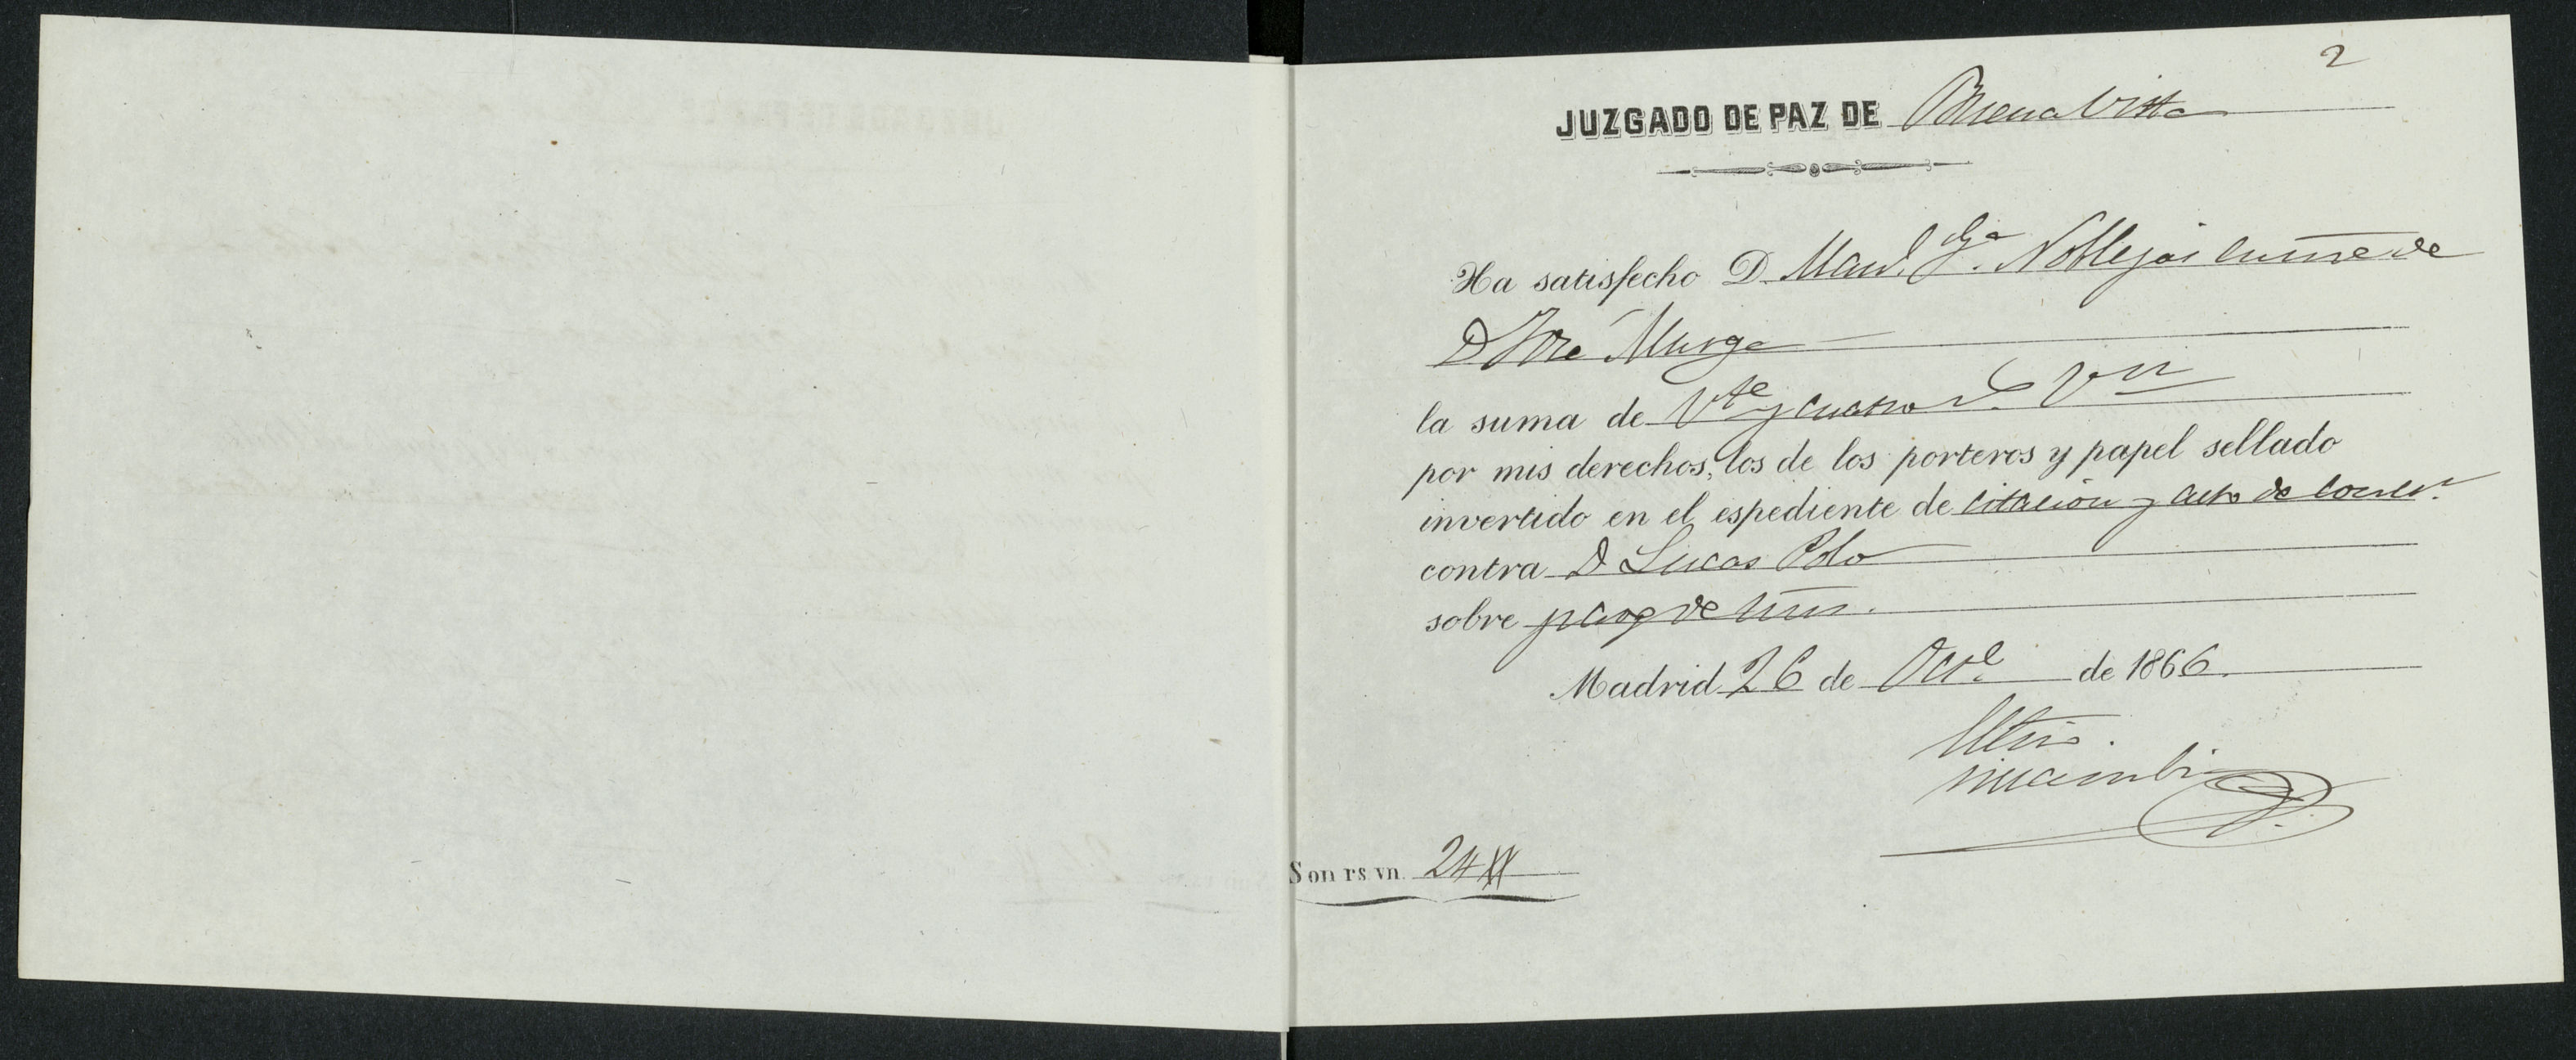 2
JUZGADO DE PAZ DE Buena Vista
Ha satisfecho D. Man.l Ga. Noblejas en nre de
D José Murga
la suma de Vte y cuatro rs. Vn
por mis derechos, los de los porteros y papel sellado
invertido en el espediente de citacion y acto de concn.
contra D Lucas Polo
sobre pago de mrs.
Madrid 26 de Oct.e de 1866.
Son rs vn. 24